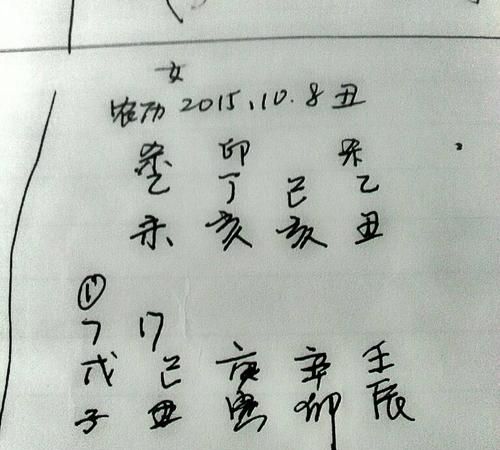 女
农历 2015.10.8 丑
杀 印 杀
乙 丁 己 乙
未 亥 亥 丑
①
7 17
戊 己 庚 辛 壬
子 丑 寅 卯 辰